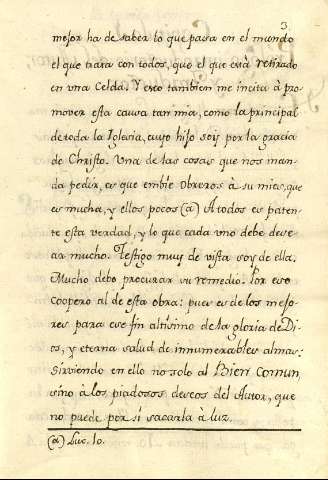 3
mejor ha de saber lo que passa en el mundo
el que trata con todos, que el que està retirado
en una Celda. Y esso tambien me incita à pro
mover esta causa tan mia, como la principal
de toda la Iglesia, cuyo hijo soy por la gracia
de Christo. Una de las cosas que nos man
da pedir, es que embie Obreros à su mies, que
es mucha, y ellos pocos (a) A todos es paten
te esta verdad, y lo que cada uno debe dese
ar mucho. Testigo muy de vista soy de ella.
Mucho debo procurar su remedio. Por eso
coopero al de esta obra: pues es de los mejo
res para ese fin altisimo de la gloria de Di
os, y eterna salud de innumerables almas:
Sirviendo en ello no solo al Bien Comun,
sino à los piadosos deseos del Autor, que
no puede por si sacarla à luz.
(a) Luc. 10.